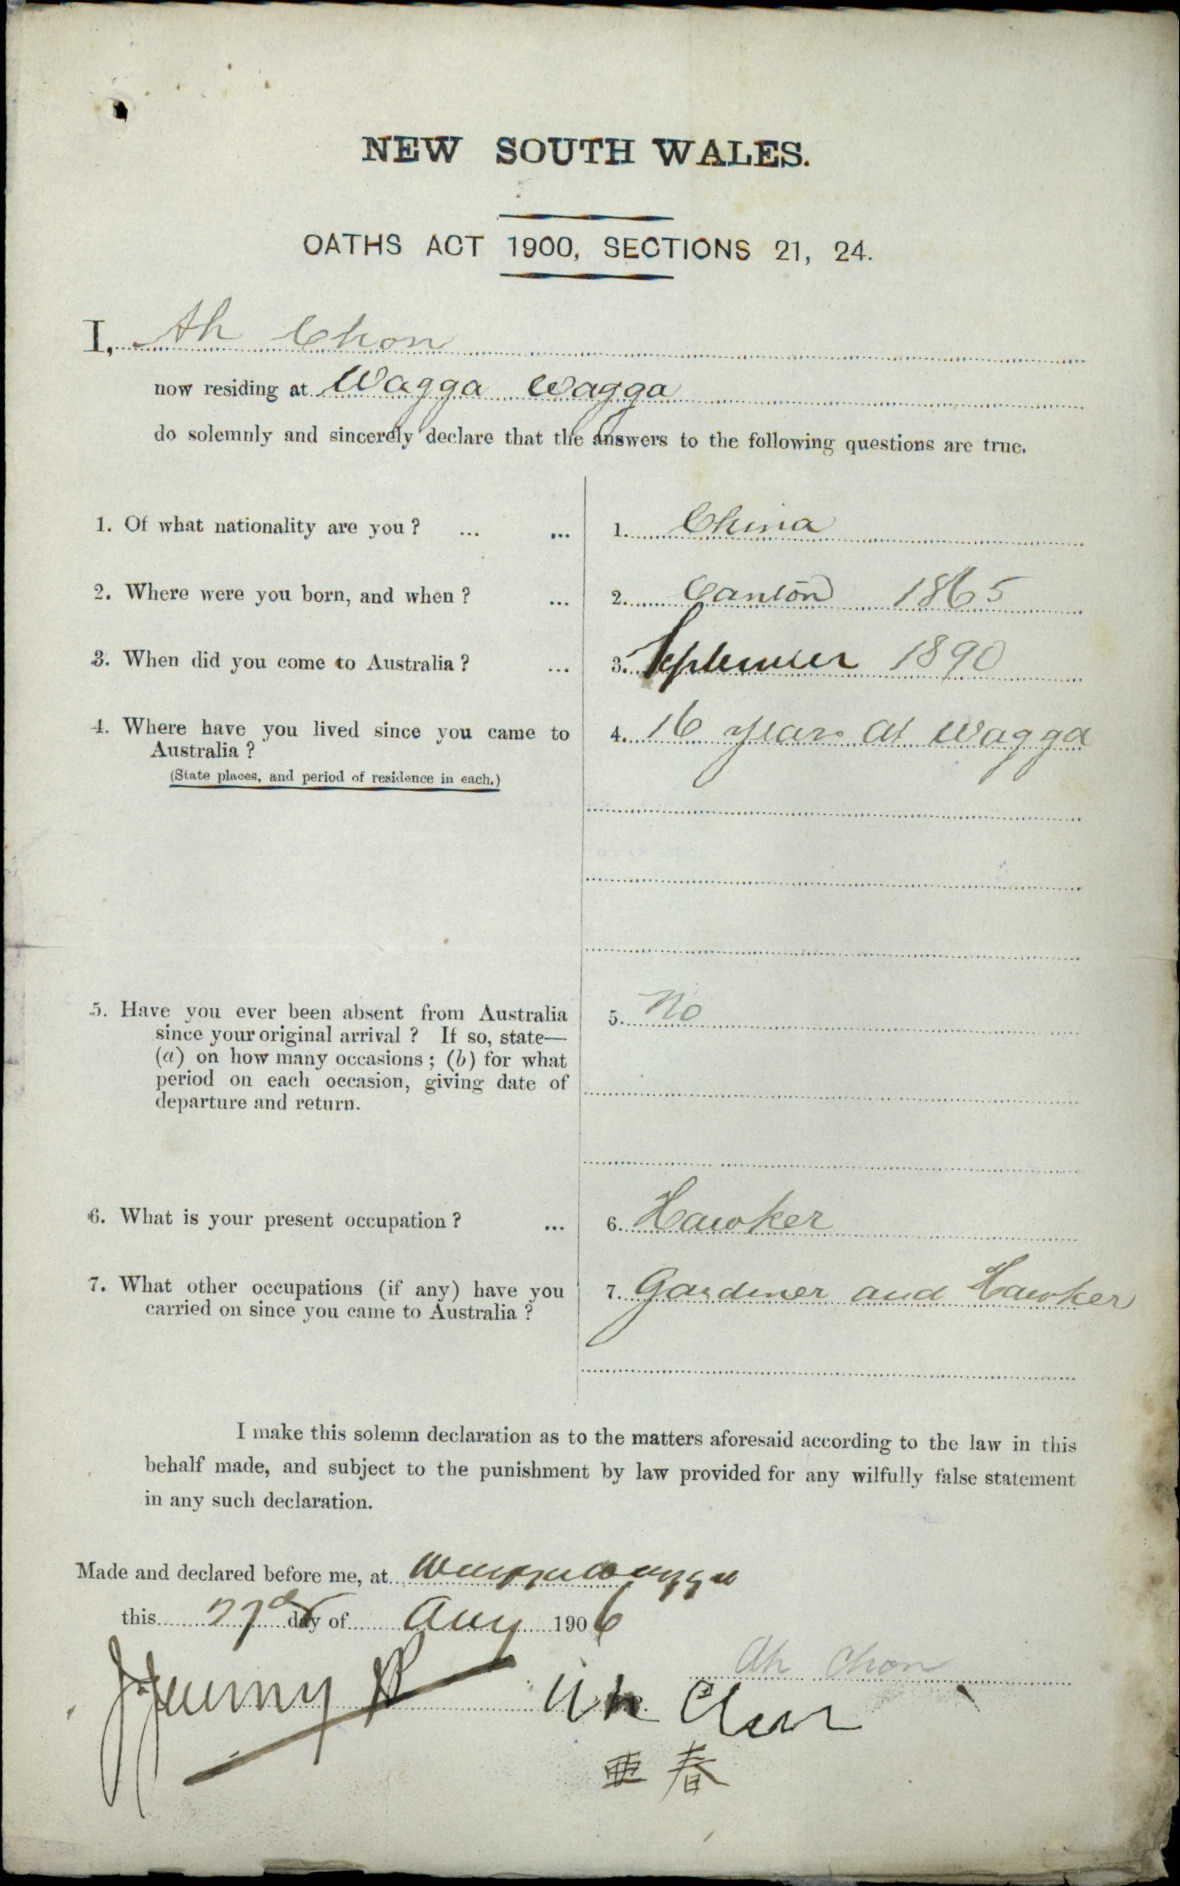 NEW SOUTH WALES.
OATHS ACT 1900, SECTIONS 21, 24.
I, Ah Chon
now residing at Wagga Wagga
do solemnly and sincerely declare that the answers to the following questions are true.
1. Of what nationality are you? ... ... 1. China
2. Where were you born, and when? ... 2. Canton 1865
3. When did you come to Australia? ... 3. September 1890
4. Where have you lived since you came to 4. 16 years at Wagga
Australia?
(State places, and period of residence in each.)
5. Have you ever been absent from Australia 5. No
since your original arrival? If so, state—
(a) on how many occasions; (b) for what
period on each occasion, giving date of
departure and return.
6. What is your present occupation? ... 6. Hawker
7. What other occupations (if any) have you 7. Gardiner and Hawker
carried on since you came to Australia?
I make this solemn declaration as to the matters aforesaid according to the law in this
behalf made, and subject to the punishment by law provided for any wilfully false statement
in any such declaration.
Made and declared before me, at Wagga Wagga
this 27 day of Aug 1906
Ah Chon
Ah Chon
亜春